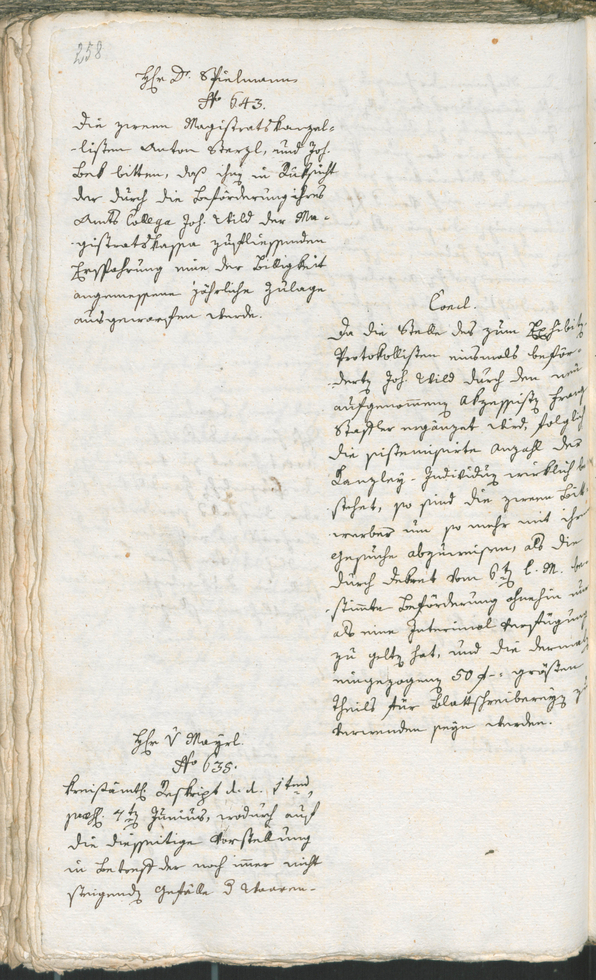 258
Hhr D. Spielmann
No 643.
Die zween Magistratskanzel-
listen Anton Sterzl, und Joh.
Bek bitten, daß ihnen in Rüksicht
der durch die Beförderung ihres
Amts Collega Joh. Wild der Ma-
gistratskassa zufliessenden
Ersparung eine der Billigkeit
angemessene jährliche Zulage
ausgeworfen werde.
Concl.
Da die Stelle des zum Exhibiten
Protokollisten einsmals beför-
derten Joh. Wild durch den neu
aufgenommenen Akzessisten Franz
Stadler ergänzet wird, folglich
die sistemisirte Anzahl der
Kanzley-Individuen wirklich be-
stehet, so sind die zween Bitt-
werber um so mehr mit ihrem
Gesuche abzuweisen, als die
durch Dekret vom 6ten l. M. be-
stimmte Beförderung ohnehin nur
als eine Interimal Verfügung
zu gelten hat, und die dermalen
eingezogenen 50 f. größten
theils für Blattschreibereyen zu
verwenden seyn werden.
Hhr V Mayrl
No 635.
Kreisämtl. Reskript d. d.
praes. 4ten Junius, wodurch auf
die diesseitige Vorstellung
in Betreff der noch immer nicht
steigenden Gefälle